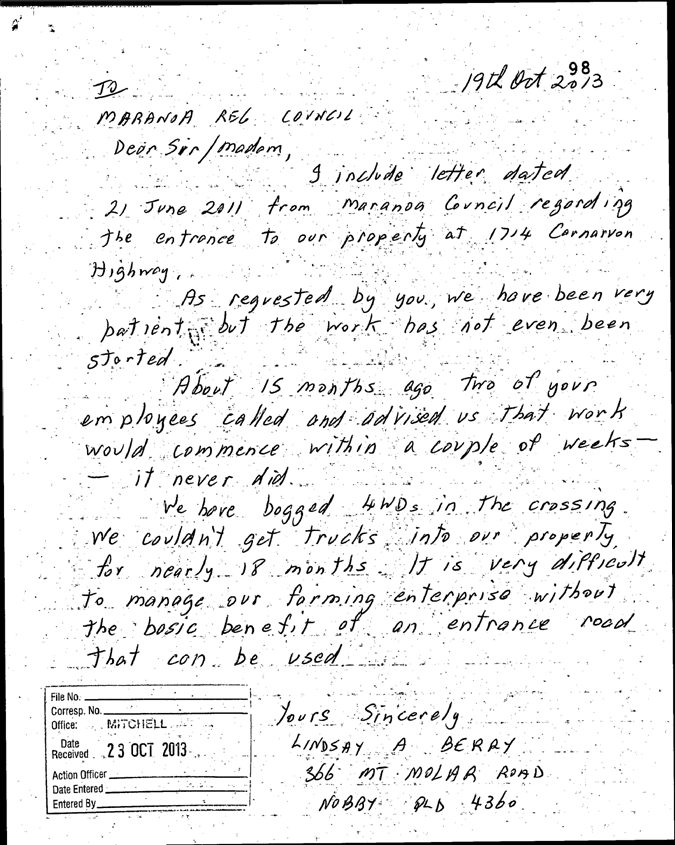 98
19th Oct 2013
To
MARANOA REG COUNCIL
Dear Sir/madam,
I include letter dated
21 June 2011 from Maranoa Council regarding
the entrance to our property at 1714 Carnarvon
Highway.
As requested by you, we have been very
patient, but the work has not even been
started.
About 15 months ago two of your
employees called and advised us that work
would commence within a couple of weeks —
— it never did.
We have bogged 4WDs in the crossing.
We couldn't get trucks into our property
for nearly 18 months. It is very difficult
to manage our farming enterprise without
the basic benefit of an entrance road
that can be used
Yours Sincerely
LINDSAY A BERRY
366 MT MOLAR ROAD
NOBBY QLD 4360
File No.
Corresp. No.
Office: MITCHELL
Date Received 23 OCT 2013
Action Officer
Date Entered
Entered By